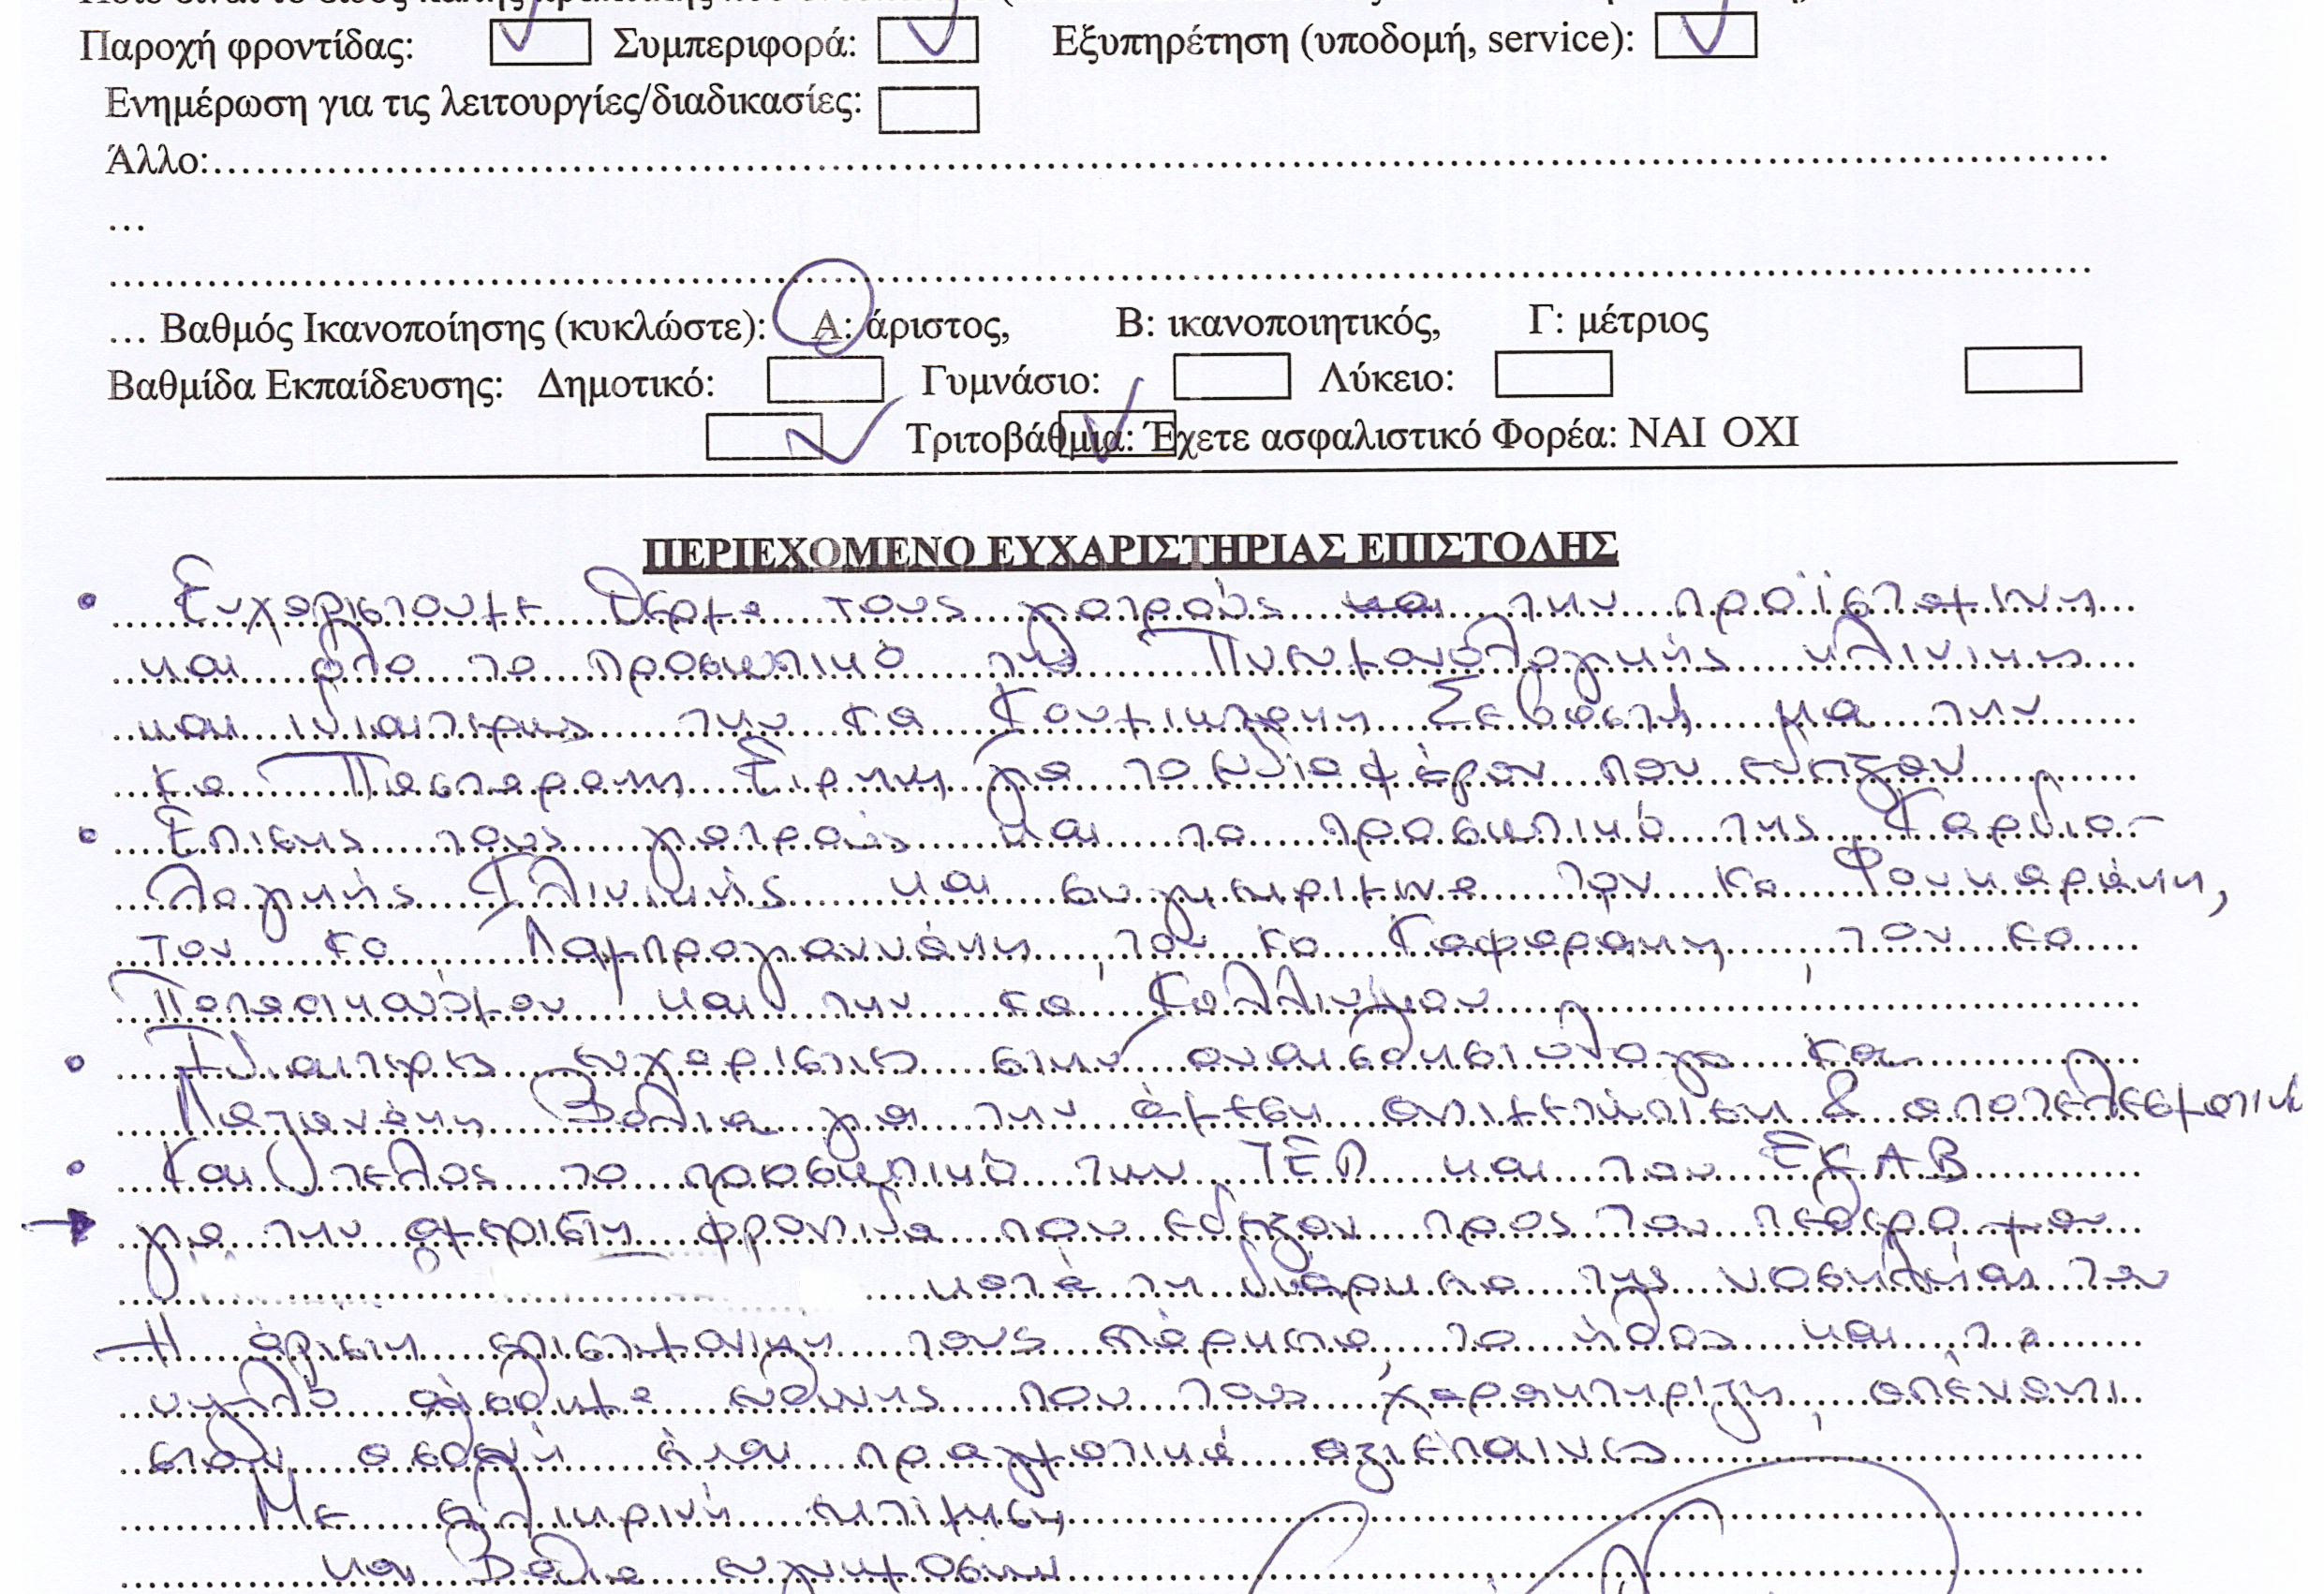 Παροχή φροντίδας: Συμπεριφορά: Εξυπηρέτηση (υποδομή, service):
Ενημέρωση για τις λειτουργίες/διαδικασίες:
Άλλο:..........
...
..........
... Βαθμός Ικανοποίησης (κυκλώστε): Α: άριστος, Β: ικανοποιητικός, Γ: μέτριος
Βαθμίδα Εκπαίδευσης: Δημοτικό: Γυμνάσιο: Λύκειο:
Τριτοβάθμια: Έχετε ασφαλιστικό Φορέα: ΝΑΙ ΟΧΙ
ΠΕΡΙΕΧΟΜΕΝΟ ΕΥΧΑΡΙΣΤΗΡΙΑΣ ΕΠΙΣΤΟΛΗΣ
• Ευχαριστουμε θερμα τους γιατρούς και την προϊσταμενη
και όλο το προσωπικό της Πνευμονολογικής κλινικης
και ιδιαιτερως την κα και την
κα Ειρηνη για το ενδιαφέρον που εδειξαν
• Επισης τους γιατρούς και το προσωπικό της Καρδιο-
λογικής Κλινικής και συγκεκριμενα τον κο
τον κο Λαμπρογιαννάκη, τον κο Καφαρακη, τον κο
Παπαοικονόμου και την κα
• Ιδιαιτερες ευχαριστιες στην αναισθησιολογο κα
Βαλια για την άμεση αντιμετώπιση & αποτελεσματικ
• Και τελος το προσωπικό των ΤΕΠ και του ΕΚΑΒ
→ για την αμεριστη φροντιδα που εδειξαν προς τον πεθερο μου
κατά τη διάρκεια της νοσηλείας του
Η άριστη επιστημονικη τους επάρκεια, το ήθος και το
υψηλό αίσθημα ευθυνης που τους χαρακτηρίζει, απέναντι
στον ασθενή είναι πραγματικά αξιεπαινες
Με ειλικρινή εκτίμηση
και βαθιά ευγνωμοσύνη